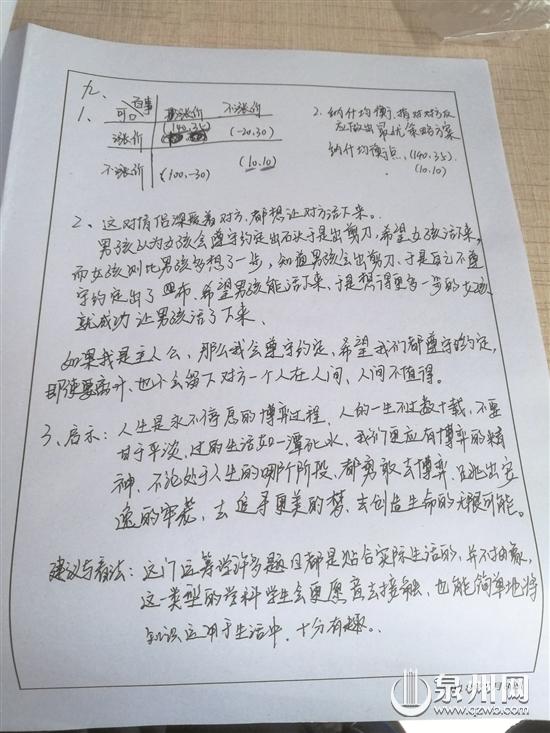 九、
1、 百事 可口 涨价 不涨价
(140,35)
涨价 (-20,30)
不涨价 (100,-30) (10,10)
2、纳什均衡:指对对方反
应做出最优策略方案
纳什均衡点:(140,35)
(10,10)
2、这对情侣深爱着对方,都想让对方活下来。
男孩认为女孩会遵守约定出石头于是出剪刀,希望女孩活下来,
而女孩则比男孩多想了一步,知道男孩会出剪刀,于是自己不遵
守约定出了布,希望男孩能活下来,于是想得更多一步的女孩
就成功让男孩活了下来、
如果我是主人公,那么我会遵守约定,希望我们都遵守约定,
即使要离开,也不会留下对方一个人在人间、人间不值得。
3、启示:人生是永不停息的博弈过程,人的一生不过数十载,不要
甘于平淡,过的生活如一潭死水,我们更应有博弈的精
神,不论处于人生的哪个阶段,都勇敢去博弈,只跳出安
逸的牢笼,去追寻更美的梦,去创造生命的无限可能。
建议与看法:这门运筹学许多题目都是贴合实际生活的,并不抽象,
这一类型的学科学生会更愿意去接触,也能简单地将
知识运用于生活中,十分有趣。
泉州网
www.qzwb.com